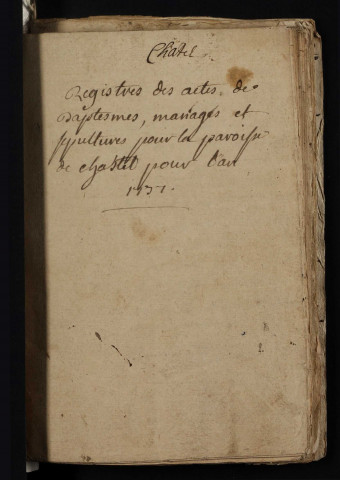 Chatel
Registres des actes, de
Baptesmes, mariages et
sepultures pour la paroisse
de chastel pour l'an
1751.